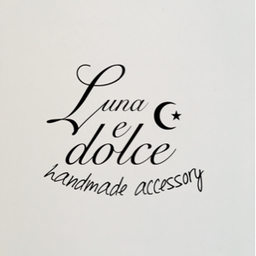 Luna
e
dolce
handmade accessory